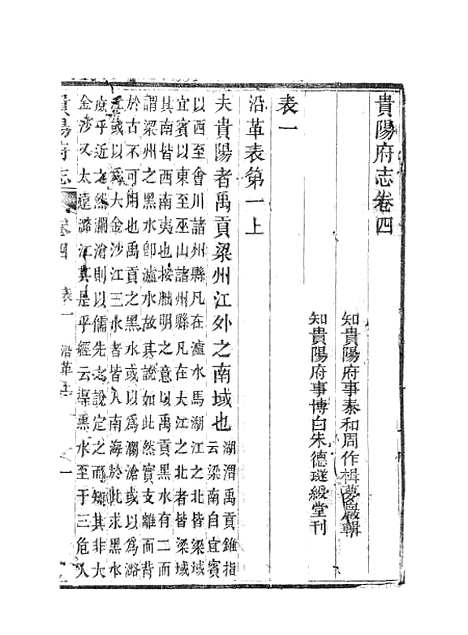 貴陽府志卷四
知貴陽府事泰和周作楫夢巖輯
知貴陽府事博白朱德璲綬堂刊
表一
沿革表第一上
夫貴陽者禹貢梁州江外之南域也胡渭禹貢錐指云梁南自宜賓
以西至會川諸州縣凡在瀘水馬湖江之北皆梁域
宜賓以東至巫山諸州縣凡在大江之北者皆梁域
其南皆西南夷也按朏明之意以禹貢黑水有二而
謂梁州之黑水卽瀘水故其說如此然實支離而背
於古不可用也禹貢之黑水或以爲瀾滄或以爲潞
江或以爲大金沙江三水者皆入南海於此求黑水
庶乎近之然瀾滄則以儒先之說定之而知其非大
金沙又太遠潞江其是乎經云導黑水至于三危入
貴陽府志 卷四 表一 沿革上 一